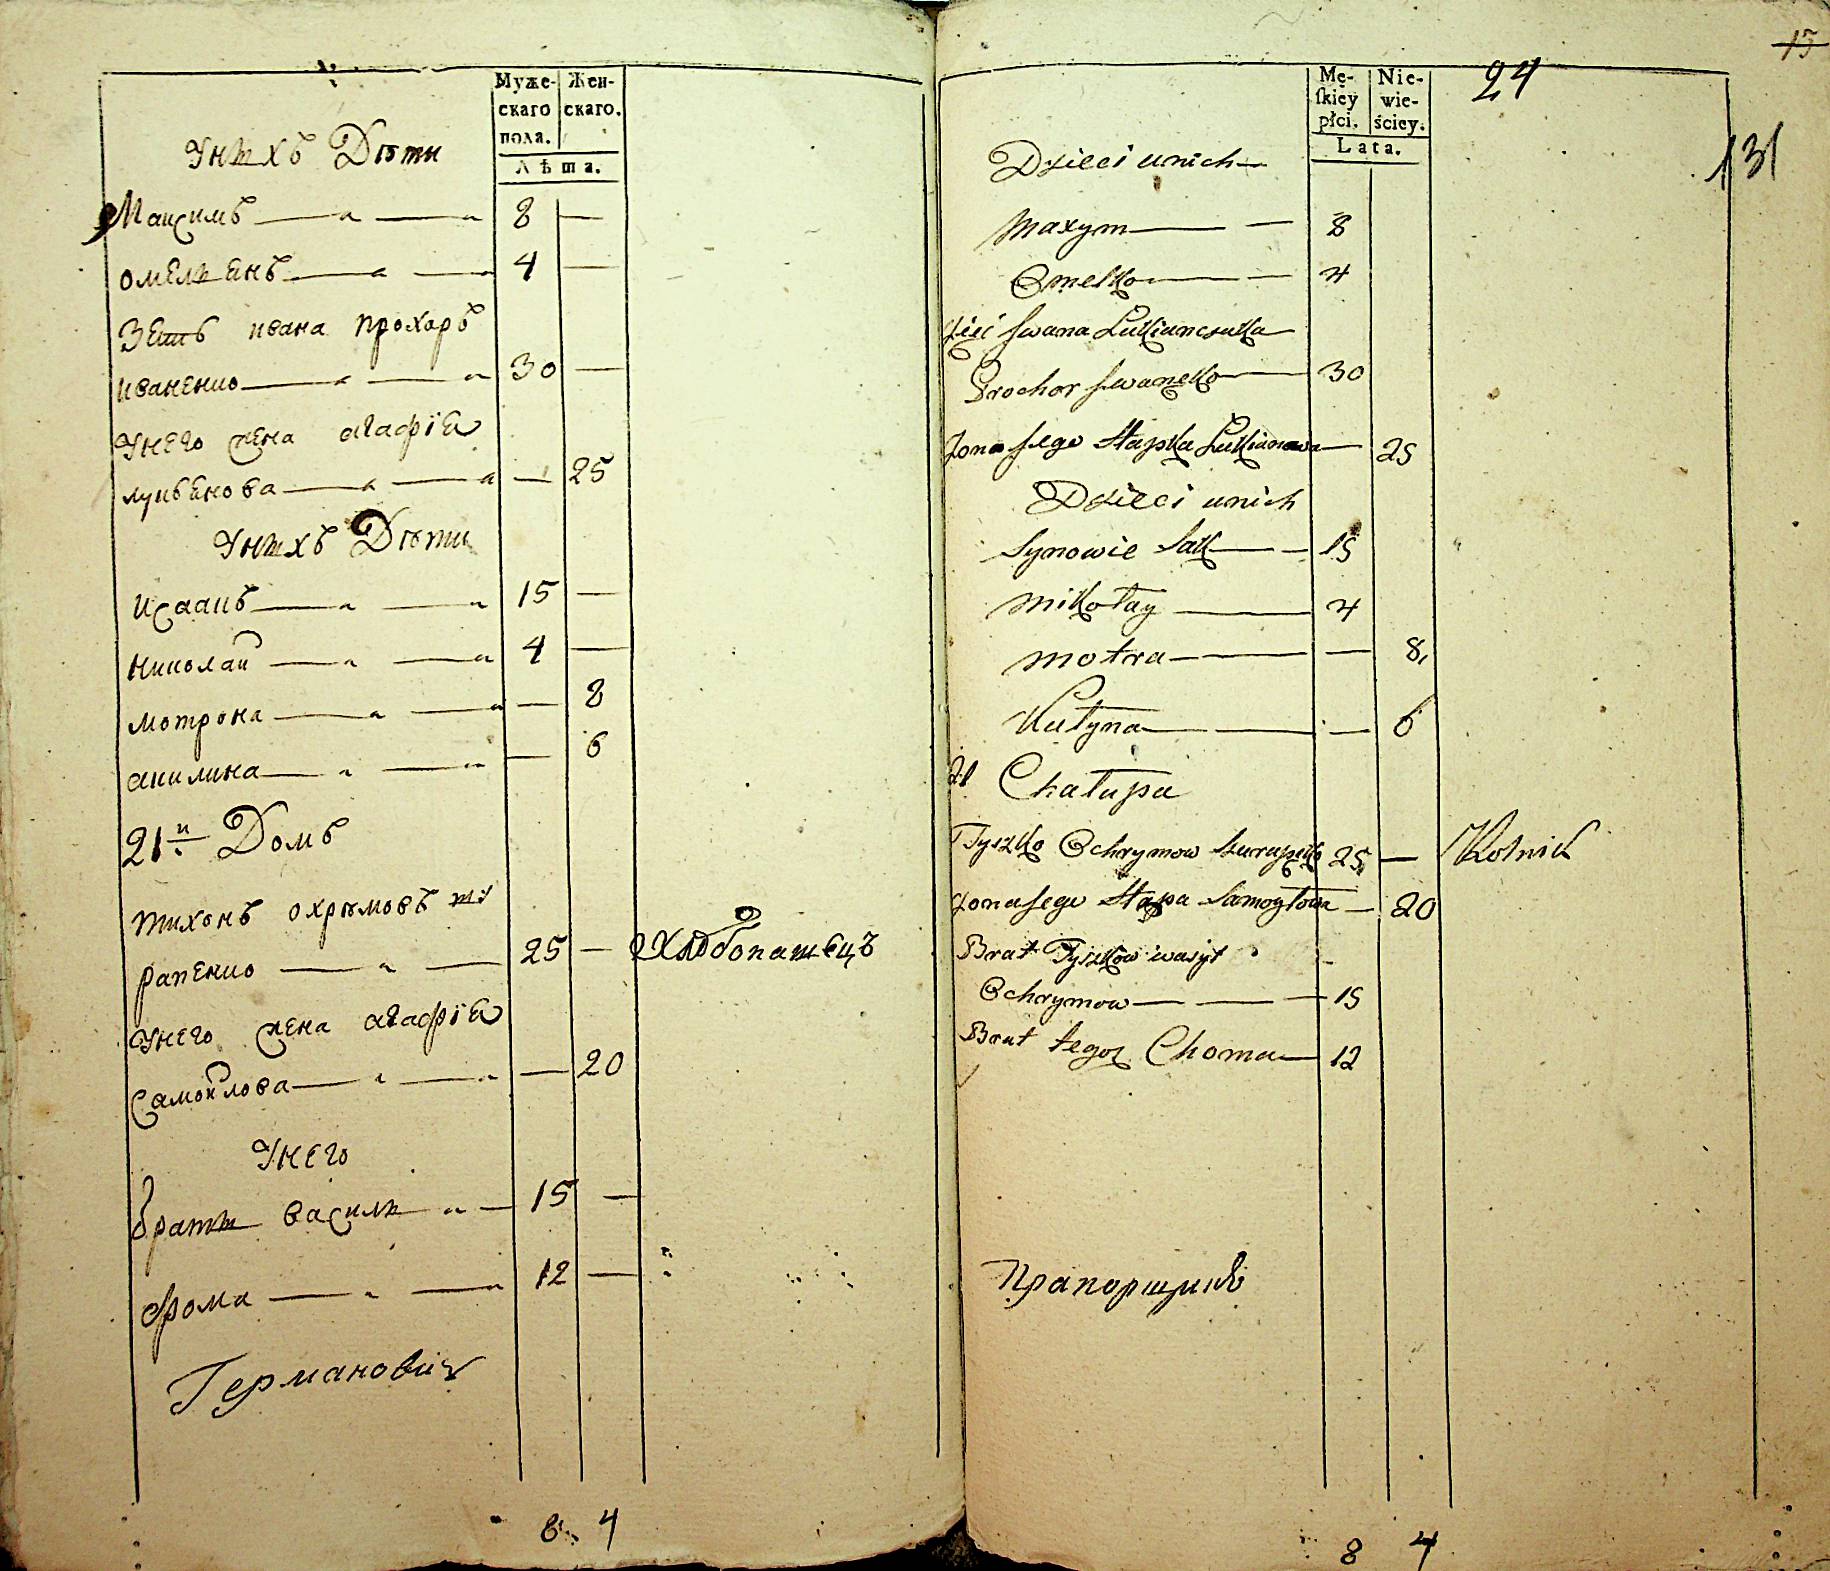 Муже-
скаго
пола.
Жен-
скаго.
Лѣта.
Унихъ Дѣти
Максимъ 8 —
омелиянъ 4 —
Зетъ ивана прохоръ
иваненко 30 —
Унего жена агафіа
лукьянова — 25
Унихъ Дѣти
исаакъ 15 —
николай 4 —
мотрона — 8
акилина — 6
21й Домъ
тихонъ охрѣмовъ
рапенко 25 — хлѣбопашецъ
Унего жена агафіа
самойлова — 20
Унего
брати василь 15 —
фома 12 —
Германович
8 4
15
24
131
Mę-
skiey
płci.
Nie-
wie-
ściey.
Lata.
Dzieci unich
Maxym 8
Omelko 4
Zięć Iwana Lukianczuka
Prochor Iwanenko 30
Zona Jego Hapka Lukianowa 25
Dzieci unich
Synowie Sak 15
Mikołay 4
Motra — 8
Kulyna — 6
21 Chałupa
Tyszko Ochrymow 25 — Rolnik
Zona Jego Hapa Samoyłowa — 20
Brat Tyszkow wasyl
Ochrymow 15
Brat tegoż Choma 12
Прапорщикъ
8 4